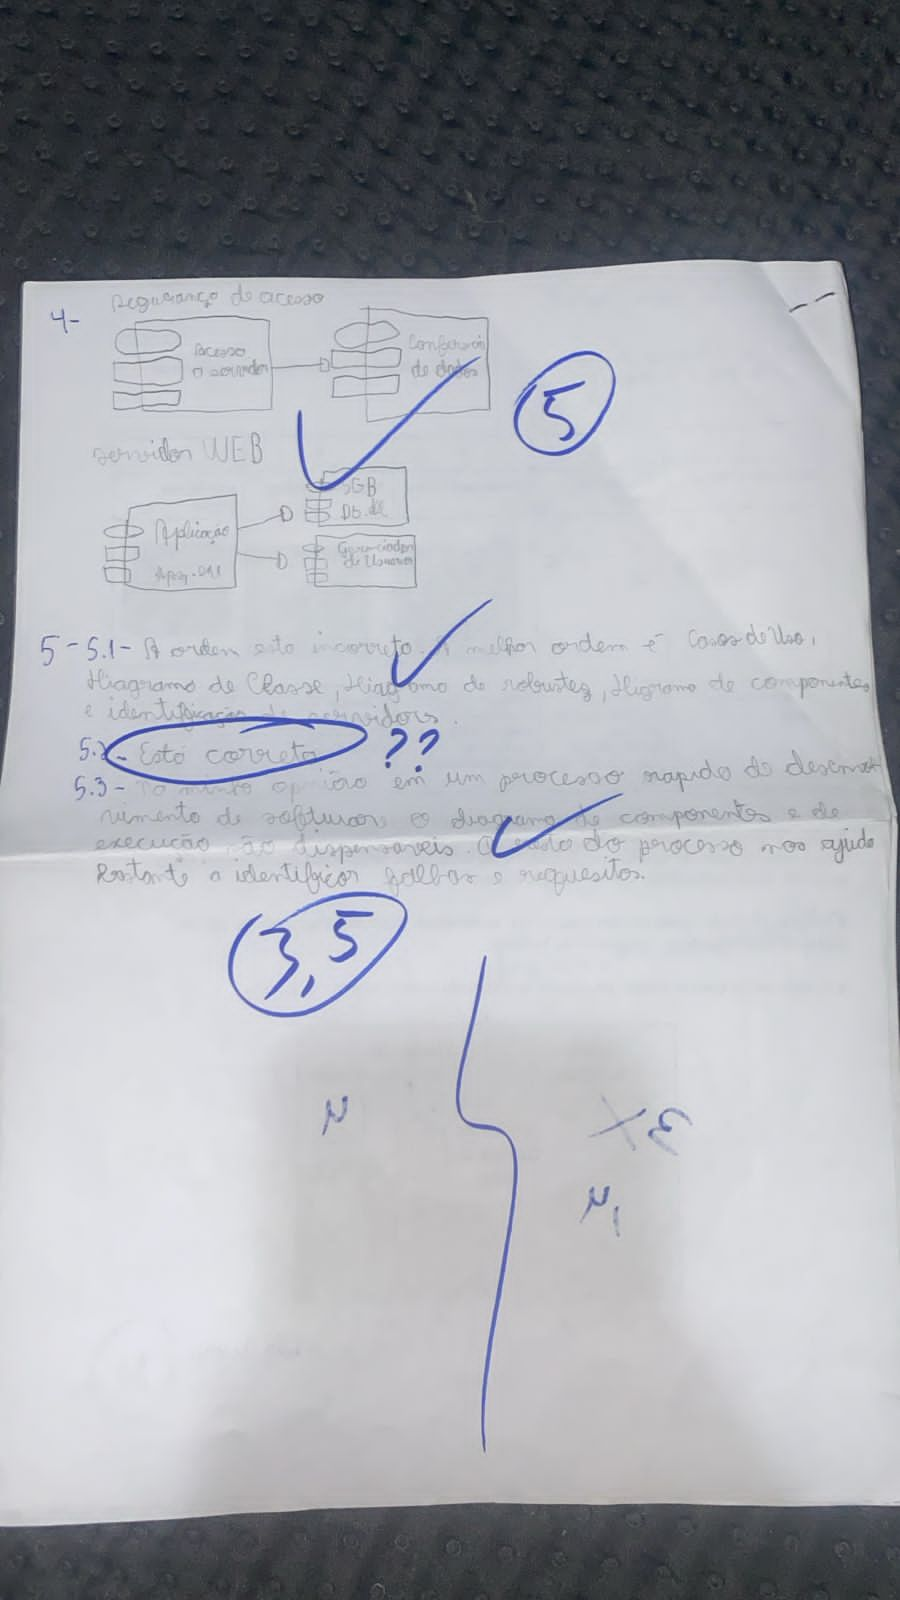 4- Segurança de acesso
Acesso
o servidor
Conferencia
de dados
5
servidor WEB
Aplicação
SGB
Gerenciador
de Usuarios
5-5.1- A ordem esta incorreta. A melhor ordem é Casos de Uso,
Diagrama de Classe, Diagrama de robustez, Digrama de componentes
e identificação de servidors.
5.2- Está correta ??
5.3- Na minha opnião em um processo rapido de desenvol
vimento de software o diagrama de componentes e de
execução são dispensaveis. O resto do processo nos ajuda
Bastante a identificar falhas e requesitos.
3,5